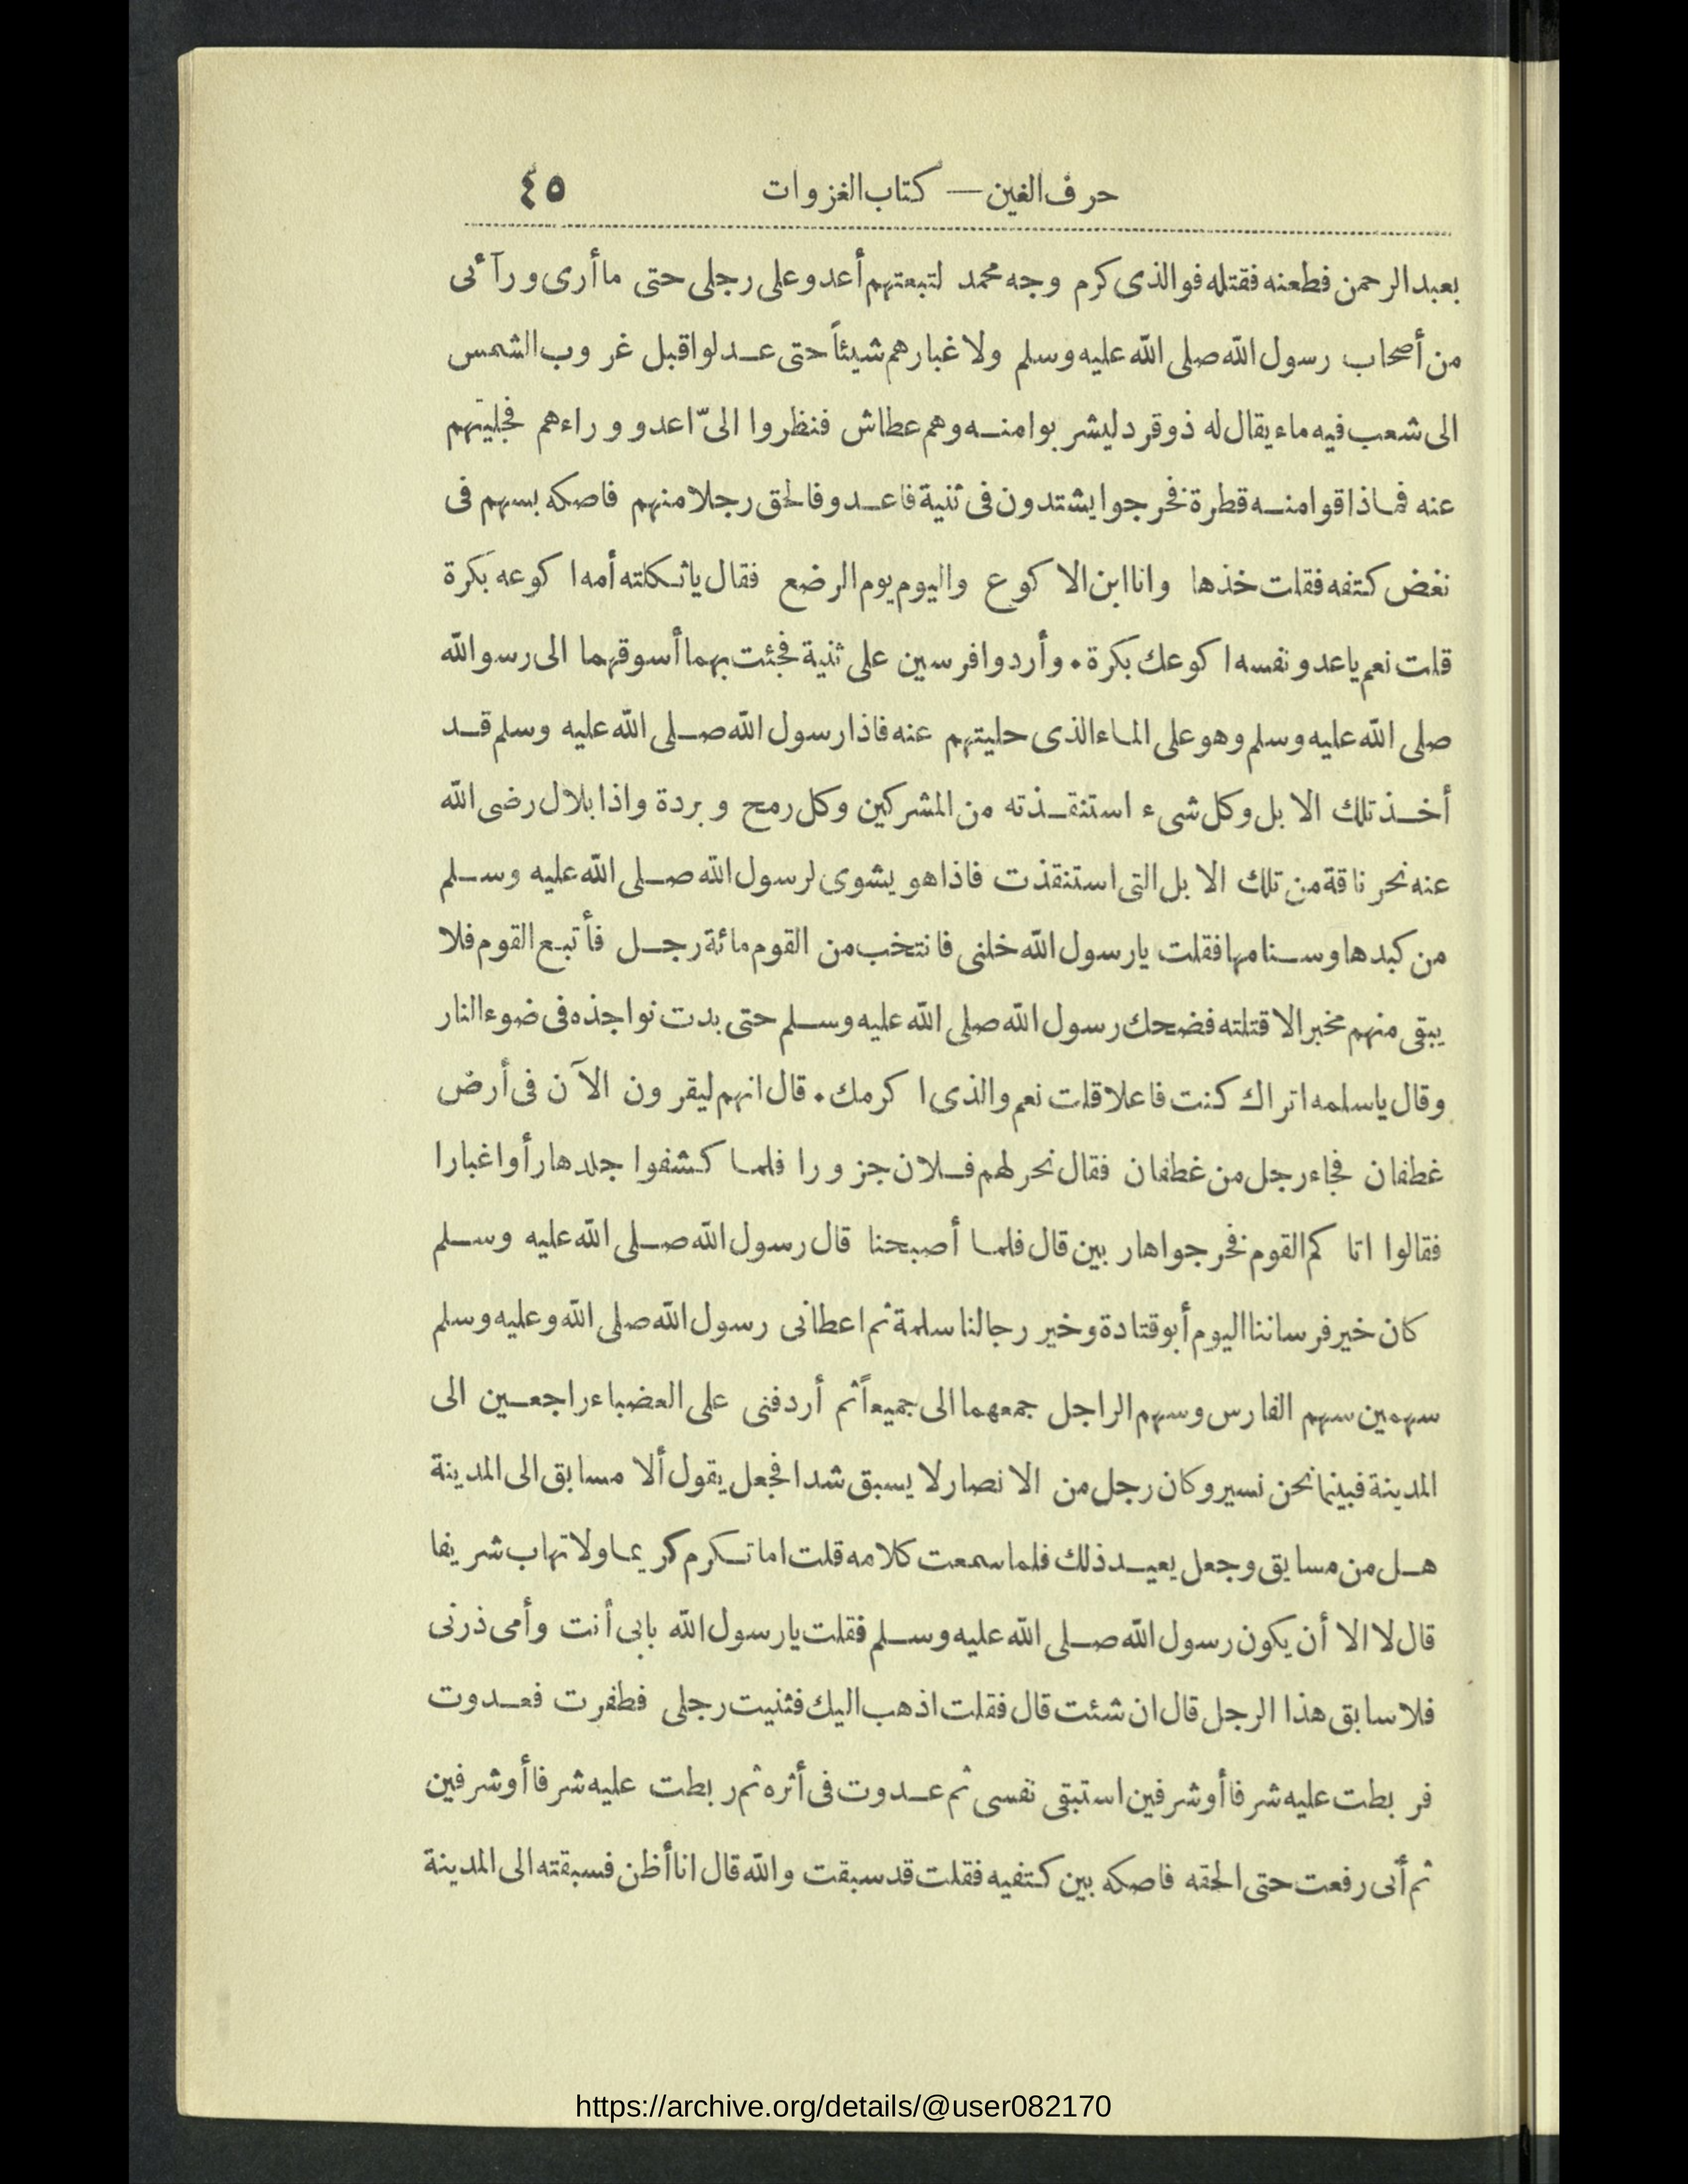 حرف الغين — كتاب الغزوات ٤٥
بعبد الرحمن فطعنه فقتله فوالذى كرم وجه محمد لتبعتهم أعدو على رجلى حتى ما أرى ورآئى
من أصحاب رسول الله صلى الله عليه وسلم ولا غبارهم شيئاً حتى عدلوا قبل غروب الشمس
الى شعب فيه ماء يقال له ذوقرد ليشربوا منه وهم عطاش فنظروا الىّ اعدو وراءهم فجليتهم
عنه فما ذاقوا منه قطرة فخرجوا يشتدون فى ثنية فاعدو فالحق رجلا منهم فاصكه بسهم فى
نغض كتفه فقلت خذها وانا ابن الاكوع واليوم يوم الرضع فقال ياثكلته أمه اكوعه بكرة
قلت نعم ياعدو نفسه اكوعك بكرة . وأردوا فرسين على ثنية فجئت بهما أسوقهما الى رسو الله
صلى الله عليه وسلم وهو على الماء الذى حليتهم عنه فاذا رسول الله صلى الله عليه وسلم قد
أخذ تلك الابل وكل شىء استنقذته من المشركين وكل رمح وبردة واذا بلال رضى الله
عنه نحر ناقة من تلك الابل التى استنقذت فاذا هو يشوى لرسول الله صلى الله عليه وسلم
من كبدها وسنامها فقلت يارسول الله خلنى فانتخب من القوم مائة رجل فأتبع القوم فلا
يبقى منهم مخبر الا قتلته فضحك رسول الله صلى الله عليه وسلم حتى بدت نواجذه فى ضوء النار
وقال ياسلمه اتراك كنت فاعلا قلت نعم والذى اكرمك . قال انهم ليقرون الآن فى أرض
غطفان فجاء رجل من غطفان فقال نحر لهم فلان جزورا فلما كشفوا جلدها رأوا غبارا
فقالوا اتاكم القوم فخرجوا هاربين قال فلما أصبحنا قال رسول الله صلى الله عليه وسلم
كان خير فرساننا اليوم أبو قتادة وخير رجالنا سلمة ثم اعطانى رسول الله صلى الله وعليه وسلم
سهمين سهم الفارس وسهم الراجل جمعهما الى جميعاً ثم أردفنى على العضباء راجعين الى
المدينة فبينما نحن نسير وكان رجل من الانصار لا يسبق شدا فجعل يقول ألا مسابق الى المدينة
هل من مسابق وجعل يعيد ذلك فلما سمعت كلامه قلت اما تكرم كريما ولا تهاب شريفا
قال لا الا أن يكون رسول الله صلى الله عليه وسلم فقلت يارسول الله بابى أنت وأمى ذرنى
فلاسابق هذا الرجل قال ان شئت قال فقلت اذهب اليك فثنيت رجلى فطفرت فعدوت
فربطت عليه شرفا أو شرفين استبقى نفسى ثم عدوت فى أثره ثم ربطت عليه شرفا أو شرفين
ثم أنى رفعت حتى الحقه فاصكه بين كتفيه فقلت قد سبقت والله قال انا أظن فسبقته الى المدينة
https://archive.org/details/@user082170